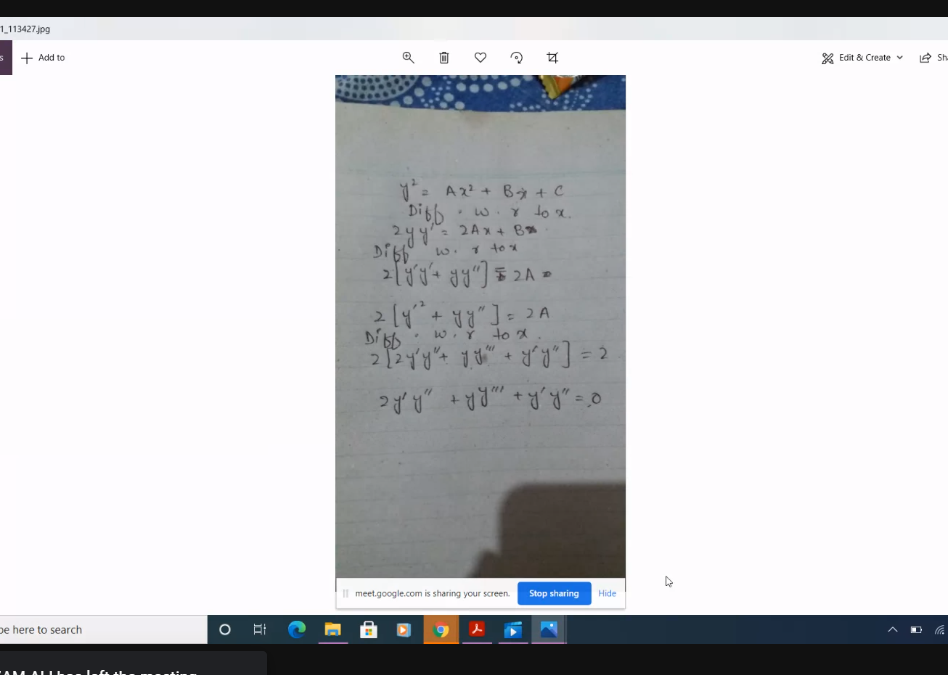 1_113427.jpg
Add to
Edit & Create
y² = Ax² + Bx + C
Diff . w . r to x.
2yy' = 2Ax + B
Diff w. r to x
2[y'y' + yy''] = 2A
2[y'² + yy''] = 2A
Diff . w . r to x.
2[2y'y'' + yy''' + y'y''] = 2
2y'y'' + yy''' + y'y'' = 0
meet.google.com is sharing your screen.
Stop sharing
Hide
here to search
has left the meeting